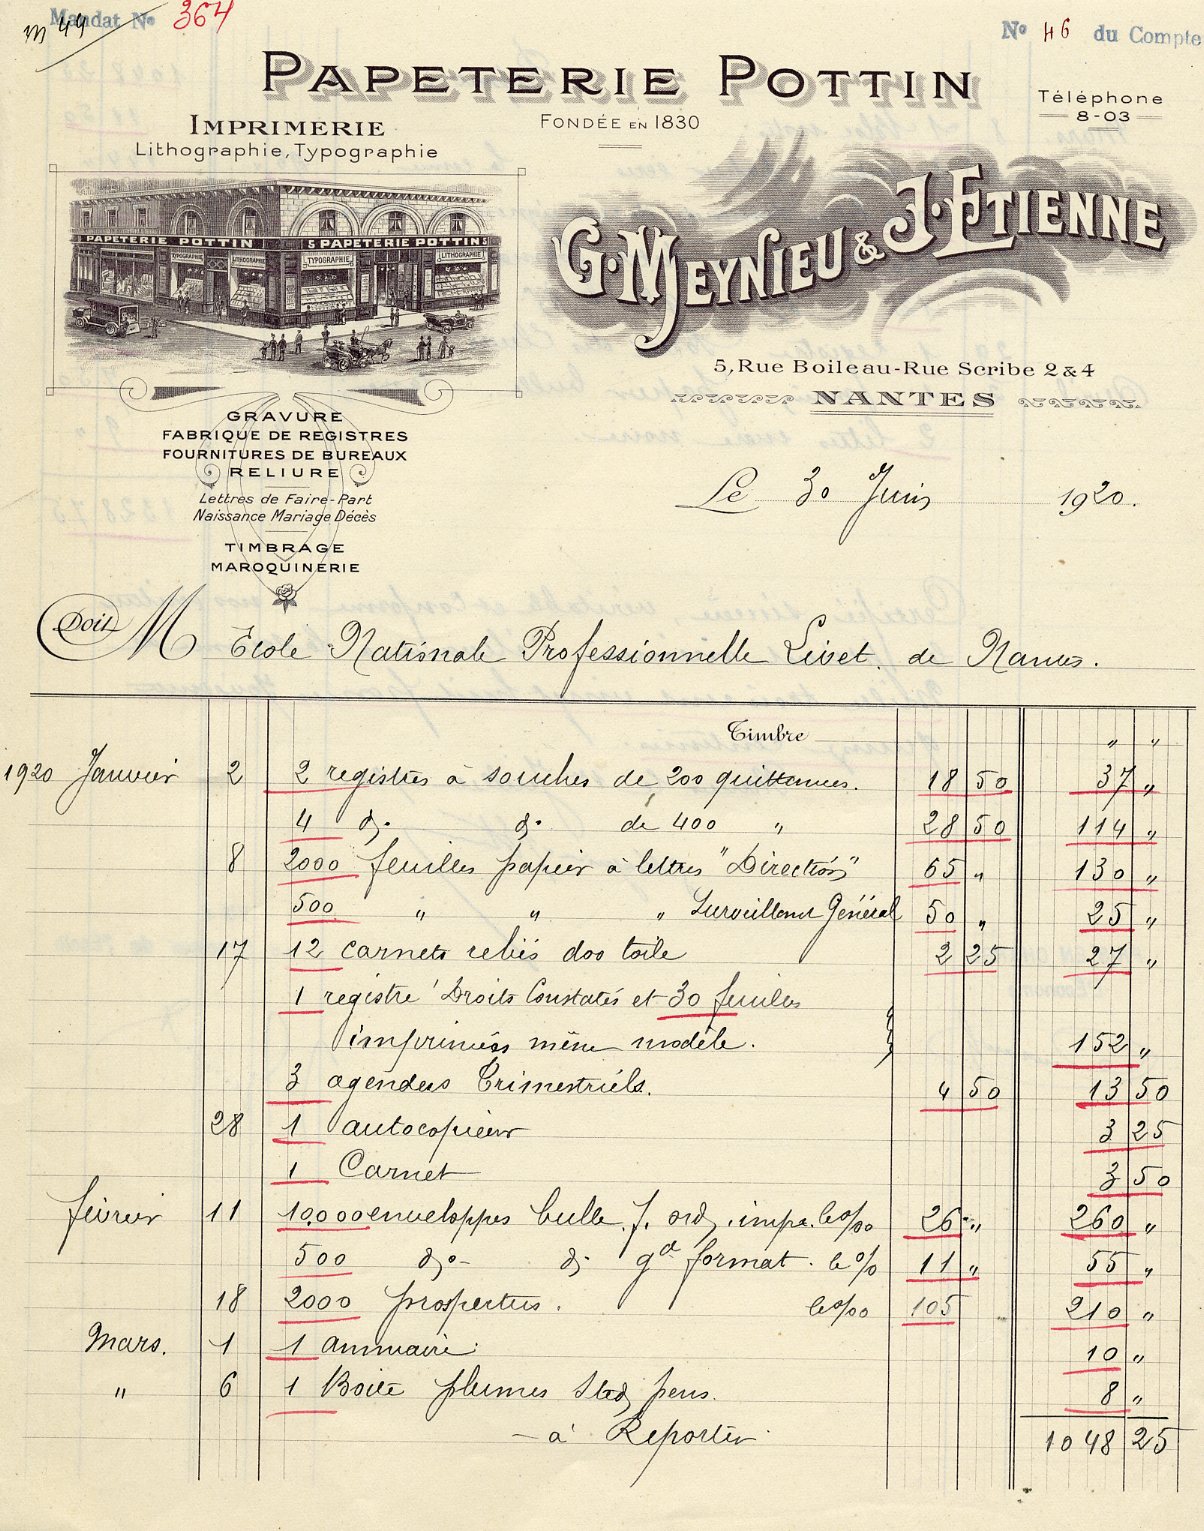 Mandat No 364
m 49
No 46 du Compte
PAPETERIE POTTIN
FONDÉE EN 1830
Téléphone
8-03
IMPRIMERIE
Lithographie, Typographie
PAPETERIE POTTIN
5 PAPETERIE POTTIN 5
TYPOGRAPHIE
LITHOGRAPHIE
TYPOGRAPHIE
LITHOGRAPHIE
G. MEYNIEU & J. ETIENNE
5, Rue Boileau-Rue Scribe 2 & 4
NANTES
GRAVURE
FABRIQUE DE REGISTRES
FOURNITURES DE BUREAUX
RELIURE
Lettres de Faire-Part
Naissance Mariage Décès
TIMBRAGE
MAROQUINERIE
Le 30 Juin 1920.
Doit M Ecole Nationale Professionnelle Livet. de Nantes.
Timbre " "
1920 Janvier 2 2 registres à souches de 200 quittances. 18 50 37 "
4 do do de 400 " 28 50 114 "
8 2000 feuilles papier à lettres "Direction" 65 " 130 "
500 " " " Surveillant Général 50 " 25 "
17 12 carnets reliés dos toile 2 25 27 "
1 registre "Droits Constatés et 30 feuilles
imprimées même modèle. 152 "
3 agendas Trimestriels. 4 50 13 50
28 1 autocopieur 3 25
1 Carnet 3 50
février 11 10.000 enveloppes bulle f. ord. impr. le o/oo 26 " 260 "
500 do do gd format. le o/o 11 " 55 "
18 2000 prospectus. le o/oo 105 210 "
Mars. 1 1 annuaire 10 "
" 6 1 Boite plumes pens. 8 "
à Reporter 1048 25